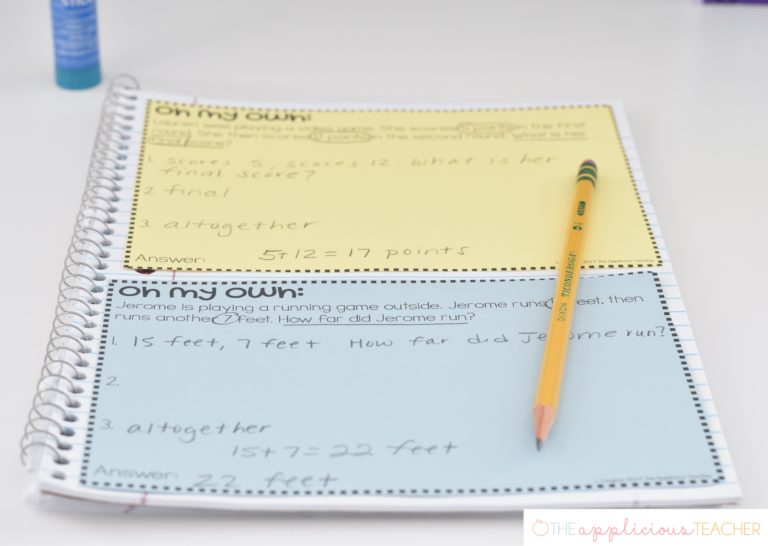 On My Own:
Lauren was playing a video game. She scores 5 points in the first
round. She then scores 12 points in the second round. What is her
final score?
1. scores 5, scores 12. What is her
final score?
2. final
3. altogether
5+12 = 17 points
Answer:
On My Own:
Jerome is playing a running game outside. Jerome runs feet, then
runs another 7 feet. How far did Jerome run?
1. 15 feet, 7 feet How far did Jerome run?
2.
3. altogether
15+7= 22 feet
Answer: 22 feet
DIXON TICONDEROGA
THE applicious TEACHER